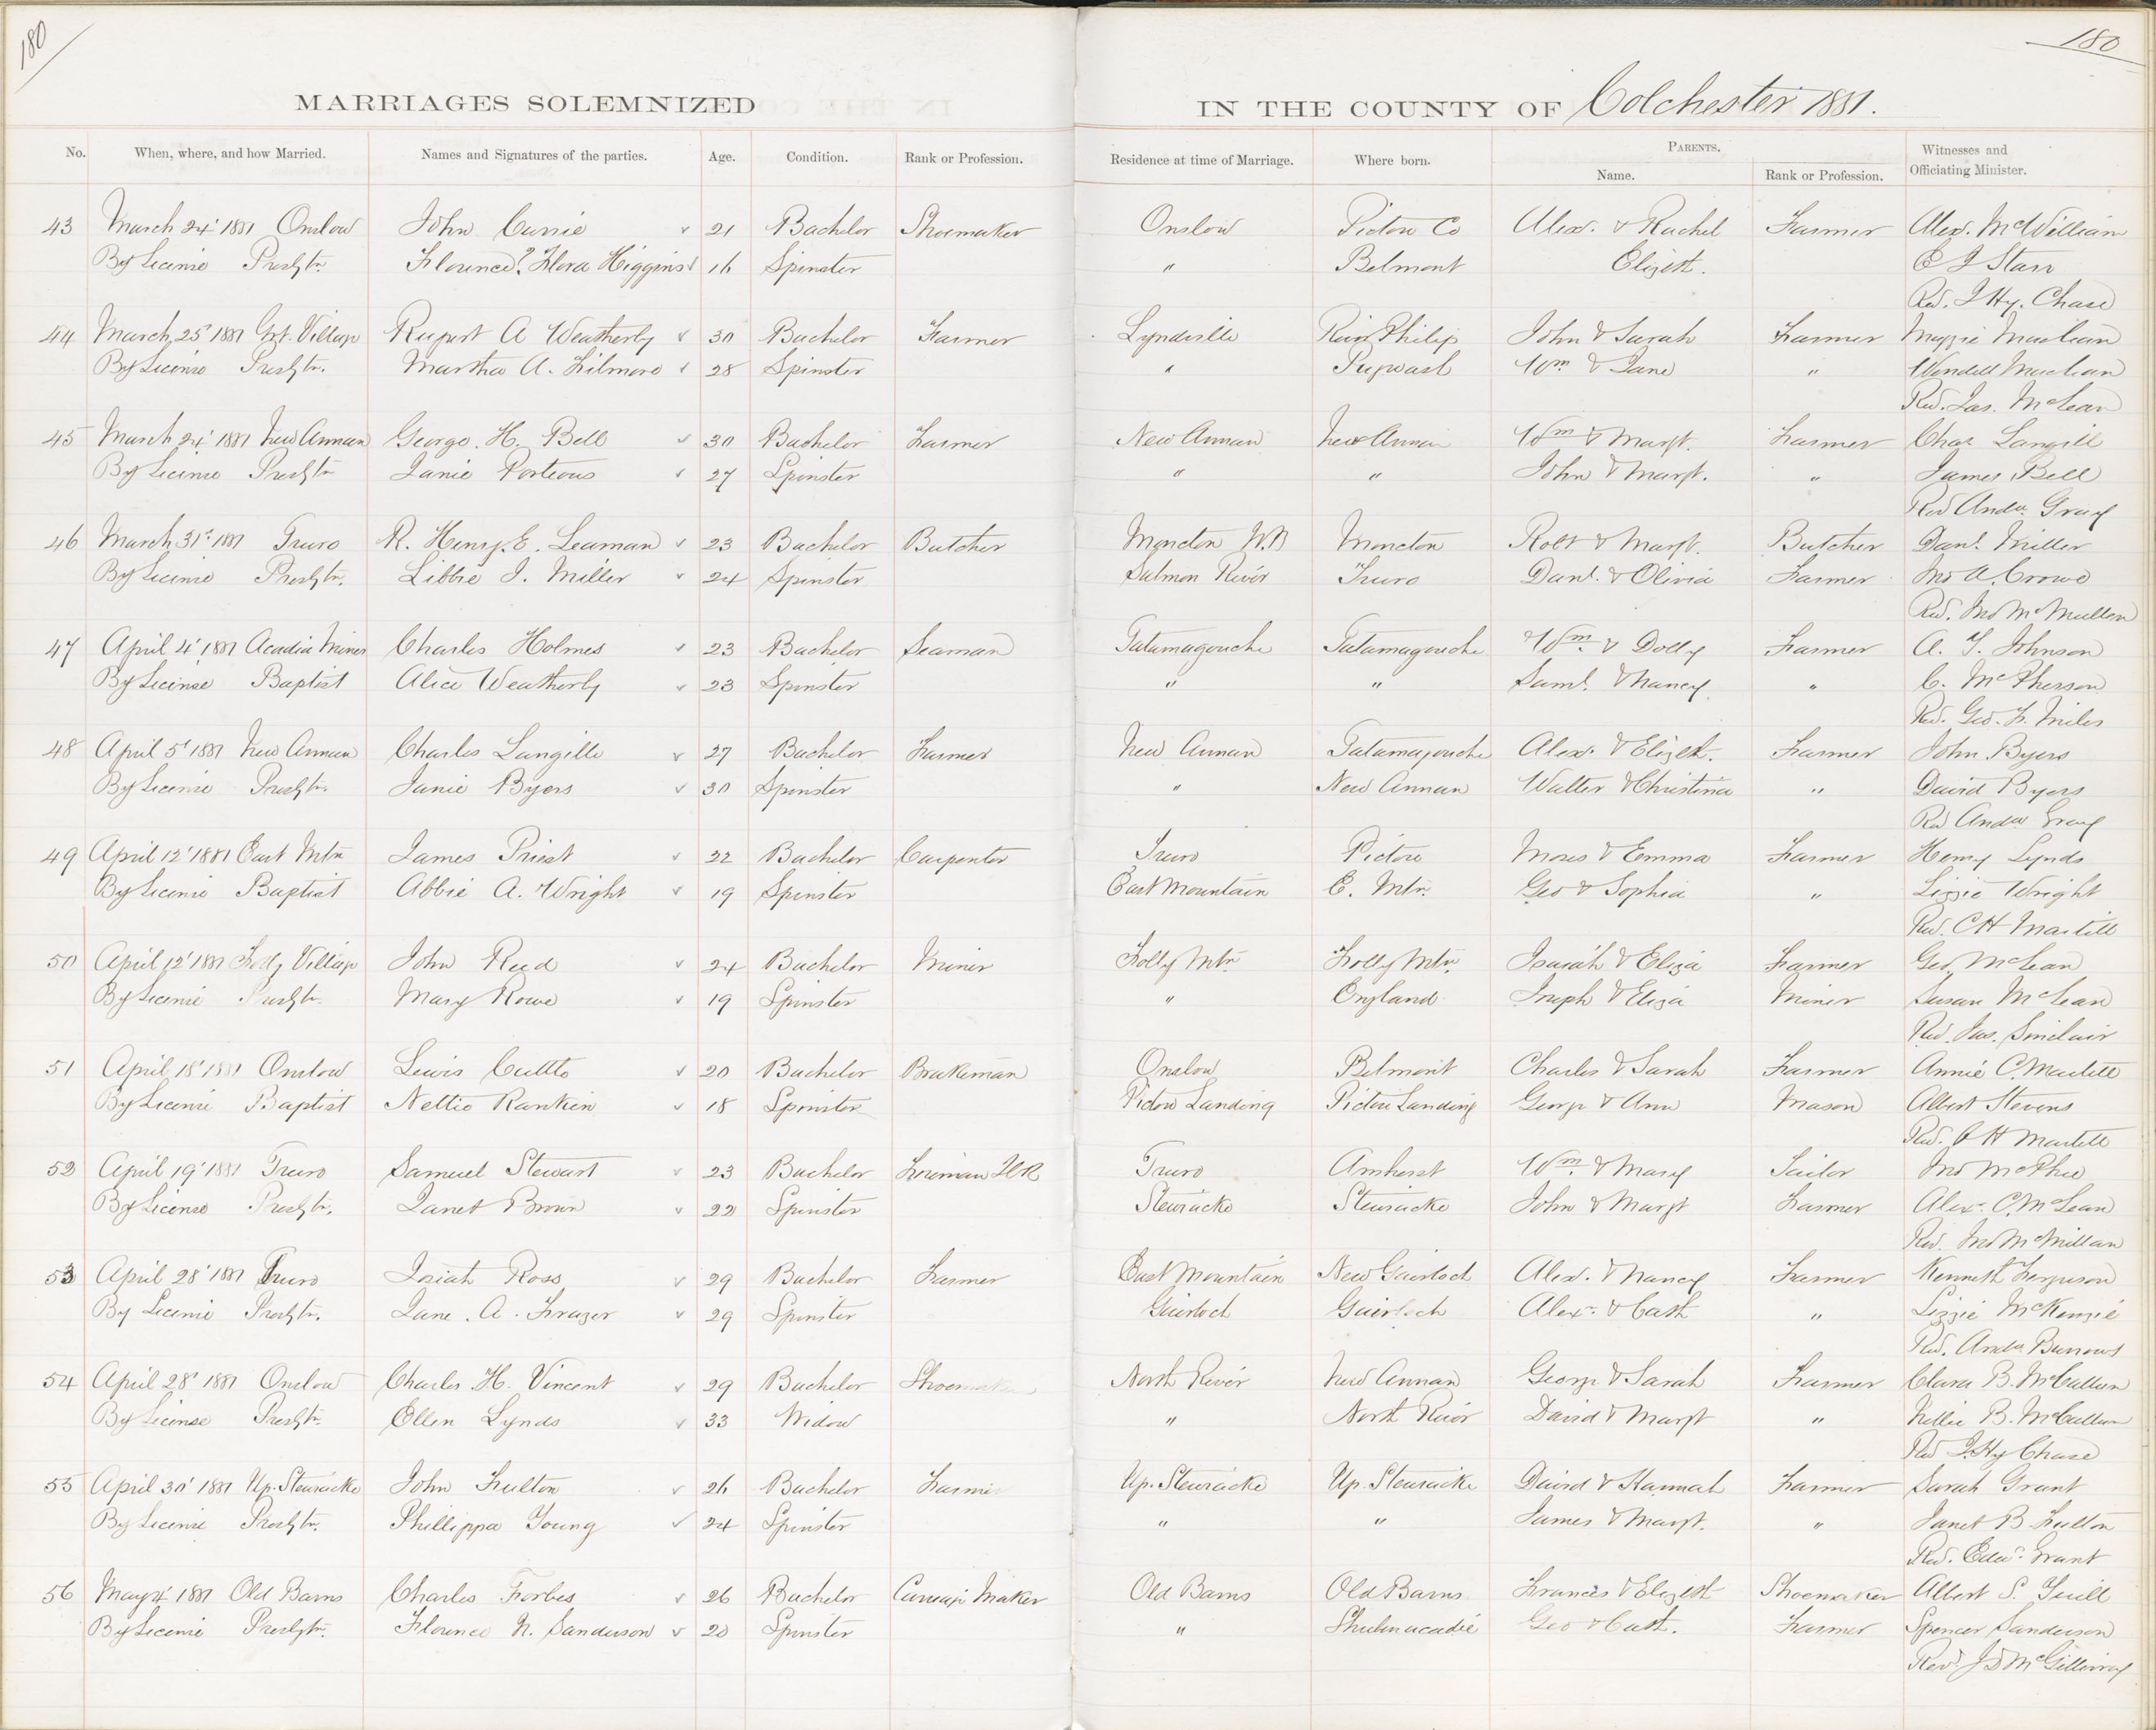 180
180
MARRIAGES SOLEMNIZED IN THE COUNTY OF Colchester 1881.
No. When, where, and how Married. Names and Signatures of the parties. Age. Condition. Rank or Profession. Residence at time of Marriage. Where born. PARENTS. Name. Rank or Profession. Witnesses and Officiating Minister.
43 March 24' 1881 Onslow John Currie 21 Bachelor Shoemaker Onslow Pictou Co Alexr. & Rachel Farmer Alex. McWilliam
By License Presbtn. Florence? Flora Higgins 16 Spinster " Belmont Elizth. Starr
Rev. J Hy. Chase
44 March 25' 1881 Grt. Village Rupert A Weatherby 30 Bachelor Farmer River Philip John & Sarah Farmer Maggie Maclean
By License Presbtn. Martha A. 28 Spinster " Pugwash Wm & Jane " Wendell Maclean
Rev. Jas. McLean
45 March 24' 1881 New Annan George. H. Bell 30 Bachelor Farmer New Annan New Annan Wm & Margt. Farmer Chas Langill
By License Presbtn Janie Porteous 27 Spinster " " John & Margt. " James Bell
Rev Andw. Gray
46 March 31st 1881 Truro R. Henry. E. Leaman 23 Bachelor Butcher Moncton N.B Moncton Robt & Margt. Butcher Danl. Miller
By License Presbtn. Libbie J. Miller 24 Spinster Salmon River Truro Danl. & Olivia Farmer Jno A. Crowe
Rev. Jno McMillan
47 April 4' 1881 Acadia Mines Charles Holmes 23 Bachelor Seaman Tatamagouche Tatamagouche Wm & Dolly Farmer A. Johnson
By License Baptist Alice Weatherby 23 Spinster " " Saml. & Nancy " C. McPherson
Rev. Geo. F. Miles
48 April 5' 1881 New Annan Charles Langille 27 Bachelor Farmer New Annan Tatamagouche Alexr. & Elizth. Farmer John Byers
By License Presbtn. Janie Byers 30 Spinster " New Annan Walter & Christina " David Byers
Rev Andw Gray
49 April 12' 1881 East Mtn James Priest 22 Bachelor Carpenter Truro Pictou Moses & Emma Farmer Henry Lynds
By License Baptist Abbie A. Wright 19 Spinster East Mountain E. Mtn. Geo & Sophia " Lizzie Wright
Rev. C H Martell
50 April 12' 1881 Folly Village John Reed 24 Bachelor Miner Folly Mtn Folly Mtn. Isaiah & Eliza Farmer Geo. McLean
By License Presbtn. Mary Rowe 19 Spinster " England Joseph & Eliza Miner Susan McLean
Rev. Jas. Sinclair
51 April 18' 1881 Onslow Lewis Cutts 20 Bachelor Brakeman Onslow Belmont Charles & Sarah Farmer Annie C. Martell
By License Baptist Nettie Rankin 18 Spinster Pictou Landing Pictou Landing George & Ann Mason Albert Stevens
Rev. C H Martell
52 April 19' 1881 Truro Samuel Stewart 23 Bachelor Fireman ICR Truro Amherst Wm & Mary Tailor Jno McPhee
By License Presbtn. Janet Brown 22 Spinster Stewiacke Stewiacke John & Margt Farmer Alexr. C. McLean
Rev. Jno McMillan
53 April 28' 1881 Truro Isiah Ross 29 Bachelor Farmer East Mountain New Gairloch Alexr. & Nancy Farmer Kenneth Ferguson
By License Presbtn. Jane. A. Frazer 29 Spinster Gairloch Gairloch Alexr. & Cath " Lizzie McKenzie
Rev. Andw Burrows
54 April 28' 1881 Onslow Charles. H. Vincent 29 Bachelor Shoemaker North River New Annan George & Sarah Farmer Clara B. McCallum
By License Presbtn. Ellen Lynds 33 Widow " North River David & Margt " Nillie B. McCallum
Rev J. Hy Chase
55 April 30' 1881 Up. Stewiacke John Fulton 26 Bachelor Farmer Up. Stewiacke Up. Stewiacke David & Hannah Farmer Sarah Grant
By License Presbtn. Phillippa Young 24 Spinster " " James & Margt. " Janet B Fulton
Rev. Edw. Grant
56 May 4' 1881 Old Barns Charles Forbes 26 Bachelor Carriage Maker Old Barns Old Barns Francis & Elizbth Shoemaker Albert S. Yuill
By License Presbtn. Florence N. Sanderson 20 Spinster " Shubnacadie Geo & Cath. Farmer Spencer Sanderson
Revd. J D McGillivray